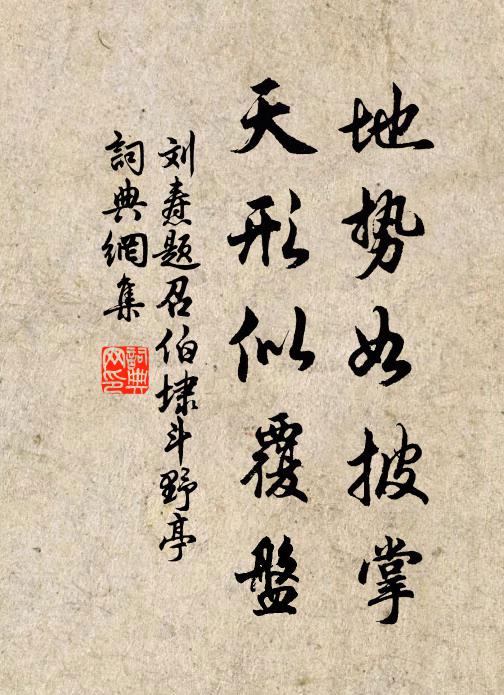 地势如披掌
天形似覆盤
刘焘题召伯埭斗野亭
詞典網集
詞典网印